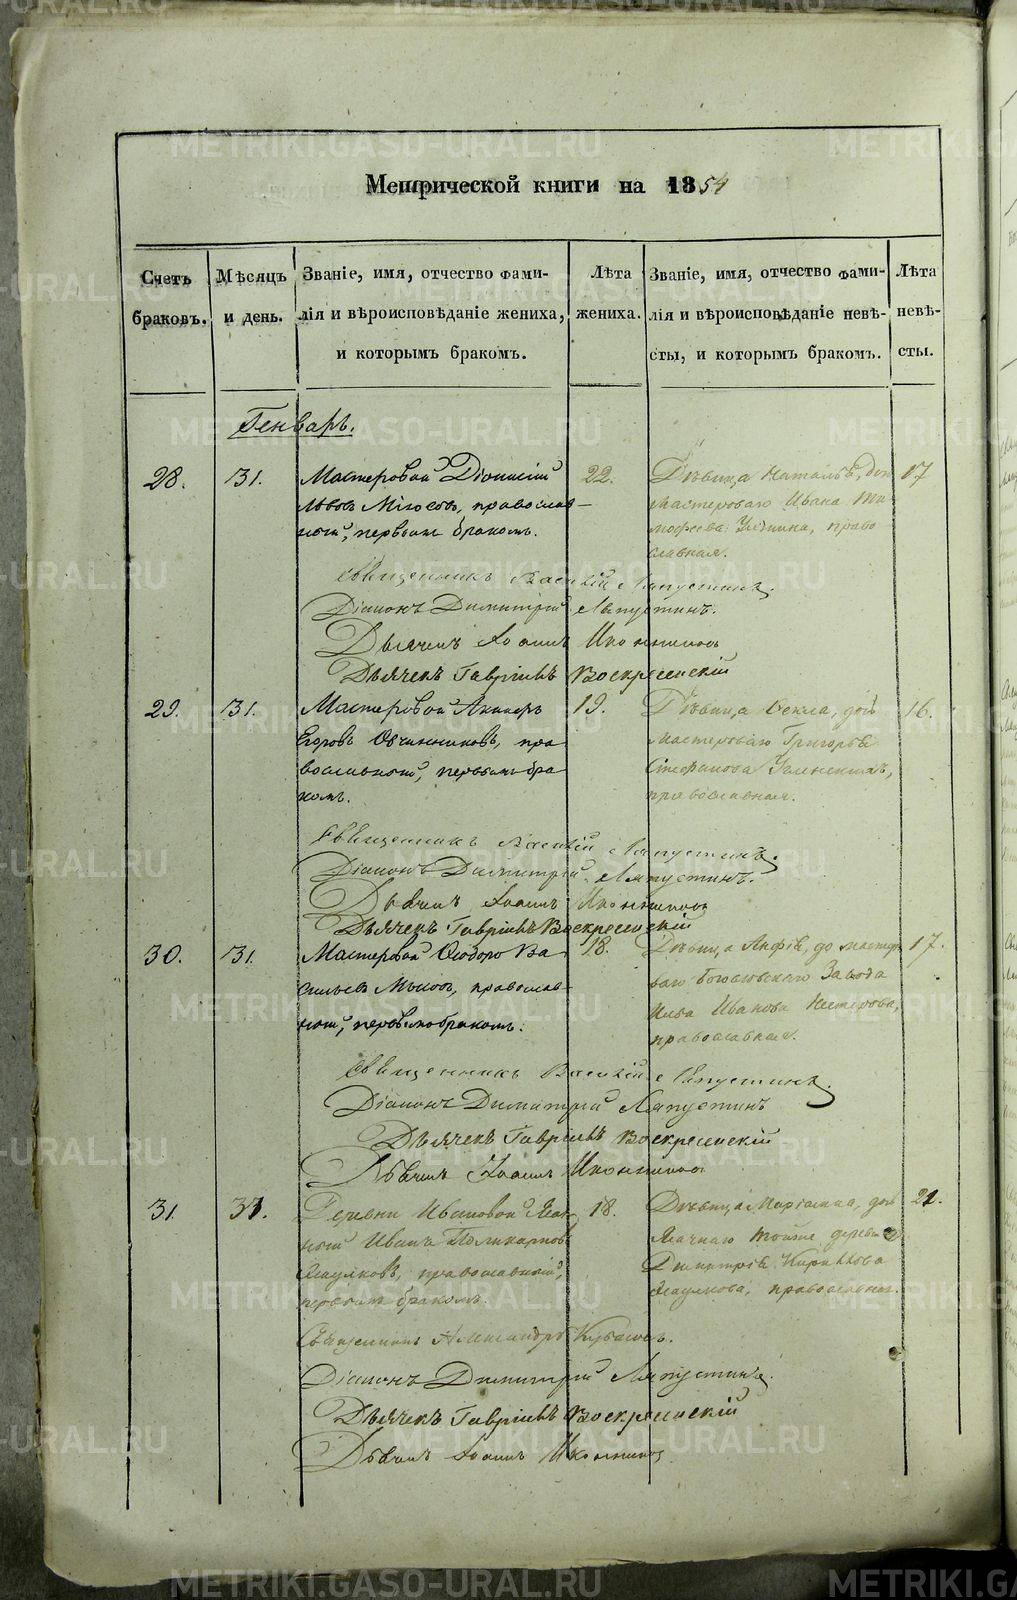 Метрической книги на 1854
Счетъ браковъ.
Мѣсяцъ и день.
Званіе, имя, отчество фами-
лія и вѣроисповѣданіе жениха,
и которымъ бракомъ.
Лѣта
жениха.
Званіе, имя, отчество фами-
лія и вѣроисповѣданіе невѣ-
сты, и которымъ бракомъ.
Лѣта
невѣ-
сты.
Генварь.
28.
31.
Мастеровой Діонисій
Львовъ, православ-
ный, первымъ бракомъ.
22.
Дѣвица
Мастероваго Ивана Ти
мофеева, право
славная.
17
Священникъ Василій Ляпустинъ.
Діаконъ Димитрій Ляпустинъ.
Дьячекъ Іоаннъ Иконниковъ
Дьячекъ Гавріилъ Воскресенскій
29.
31.
Мастеровой
Егоровъ Овчинниковъ, пра
вославный, первымъ бра
комъ.
19.
Дѣвица Ѳекла, дочь
Мастероваго Григорья
Стефанова
православная.
16.
Священникъ Василій Ляпустинъ.
Діаконъ Димитрій Ляпустинъ.
Дьячекъ Іоаннъ Иконниковъ
Дьячекъ Гавріилъ Воскресенскій
30.
31.
Мастеровой Ѳеодоръ Ва
сильевъ, православ-
ный, первымъ бракомъ.
18.
Дѣвица, до мастеро
ваго Богословскаго Завода
Ивана Нестерова,
православная.
17.
Священникъ Василій Ляпустинъ.
Діаконъ Димитрій Ляпустинъ
Дьячекъ Гавріилъ Воскресенскій
Дьячекъ Іоаннъ Иконниковъ
31.
31.
Деревни Ивановой
Иванъ Поликарповъ
православный,
первымъ бракомъ.
18.
Дѣвица Маріамна, дочь
тойже деревни
Димитрія Кирилова
православная.
21.
Священникъ Александръ
Діаконъ Димитрій Ляпустинъ.
Дьячекъ Гавріилъ Воскресенскій
Дьячекъ Іоаннъ Иконниковъ
METRIKI.GASO-URAL.RU